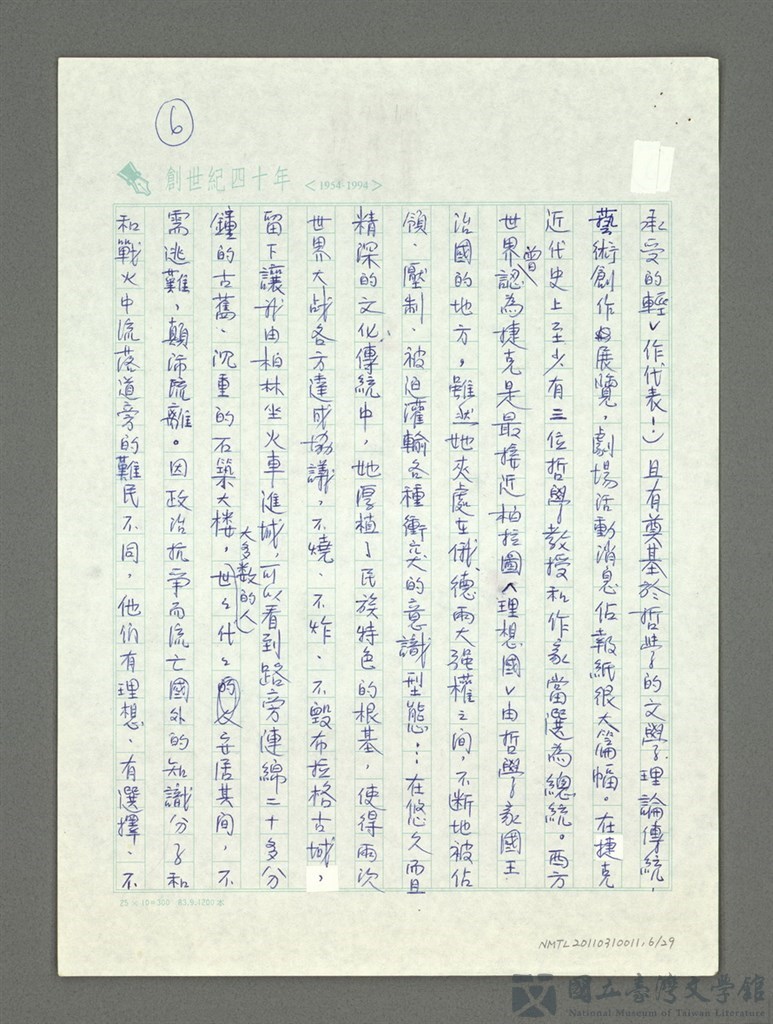 6
創世紀四十年 <1954-1994>
承受的輕﹀作代表!)且有奠基於哲學的文學理論傳統,
藝術創作展覽,劇場活動消息佔報紙很大篇幅。在捷克
近代史上至少有三位哲學教授和作家當選為總統。西方
世界曾認為捷克是最接近柏拉圖︿理想國﹀由哲學家國王
治國的地方。雖然她夾處在俄德兩大强權之間,不斷地被佔
領、壓制、被迫灌輸各種衝突的意識型態…在悠久而且
精深的文化傳統中,她厚植了民族特色的根基,使得兩次
世界大战各方達成協議,不燒、不炸、不毀布拉格古城,
留下讓我由柏林坐火車進城,可以看到路旁連綿二十多分
鐘的古舊、沉重的石築大楼,大多數的人世世代代安居其間,不
需逃難,顛沛流離。因政治抗爭而流亡國外的知識分子和
和戰火中流落道旁的難民不同,他们有理想、有選擇、不
25×10=300 83.9.1200本
NMTL20110310011,6/29
國立臺灣文學館
National Museum of Taiwan Literature